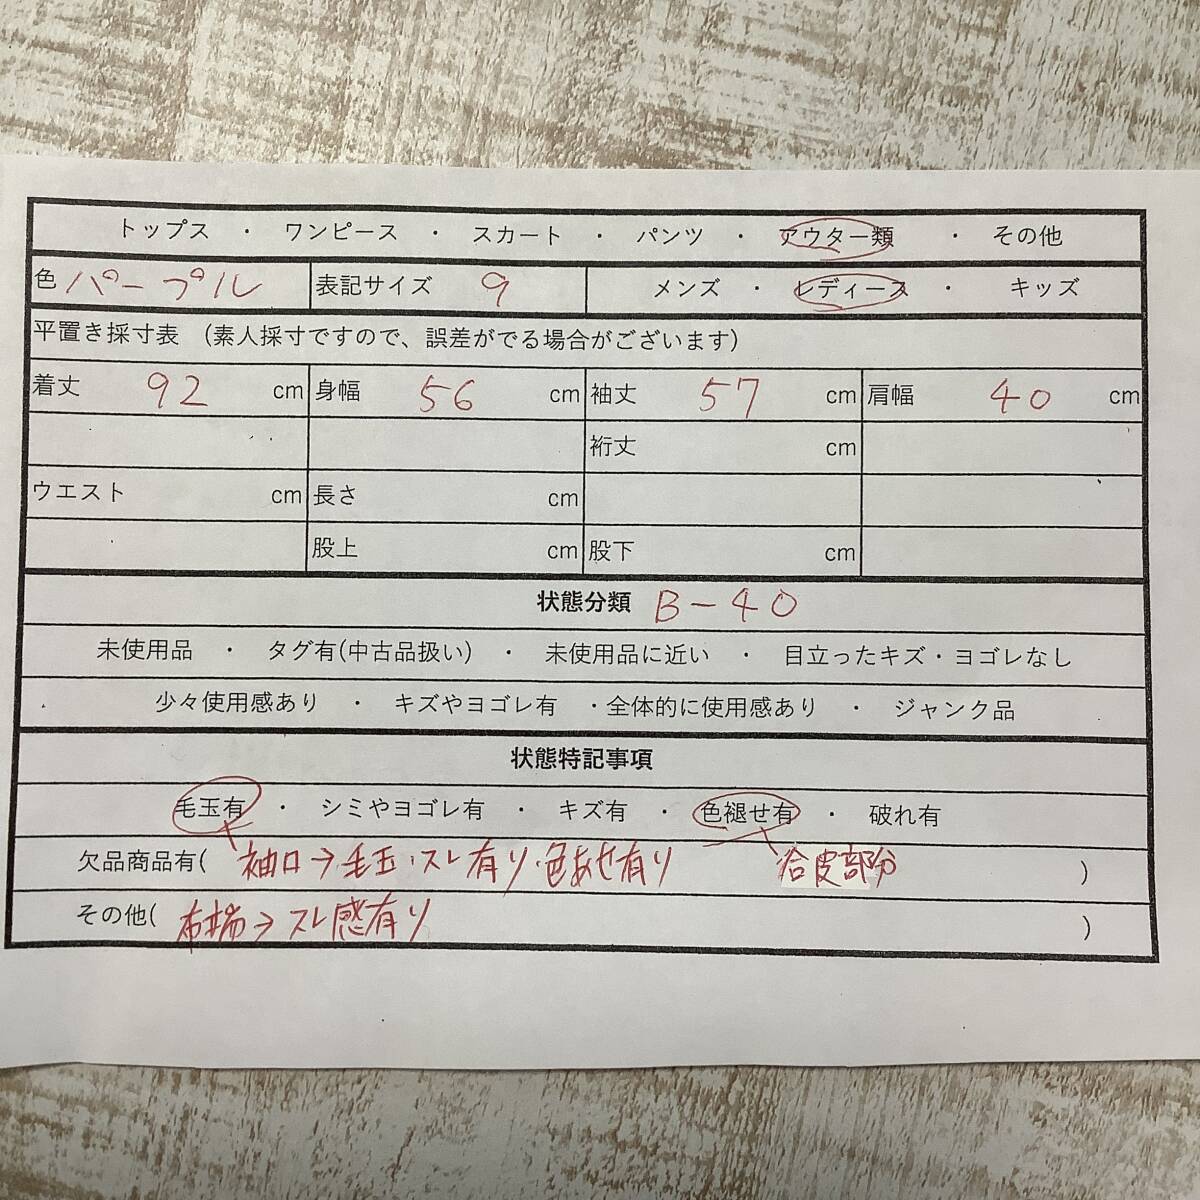 トップス ・ ワンピース ・ スカート ・ パンツ ・ アウター類 ・ その他
色 パープル 表記サイズ 9 メンズ ・ レディース ・ キッズ
平置き採寸表 (素人採寸ですので、誤差がでる場合がございます)
着丈 92 cm 身幅 56 cm 袖丈 57 cm 肩幅 40 cm
裄丈 cm
ウエスト cm 長さ cm
股上 cm 股下 cm
状態分類 B-40
未使用品 ・ タグ有(中古品扱い) ・ 未使用品に近い ・ 目立ったキズ・ヨゴレなし
少々使用感あり ・ キズやヨゴレ有 ・全体的に使用感あり ・ ジャンク品
状態特記事項
毛玉有 ・ シミやヨゴレ有 ・ キズ有 ・ 色褪せ有 ・ 破れ有
欠品商品有( 袖口→毛玉・スレ有り・色あせ有り 合皮部分 )
その他( 布端→スレ感有り )